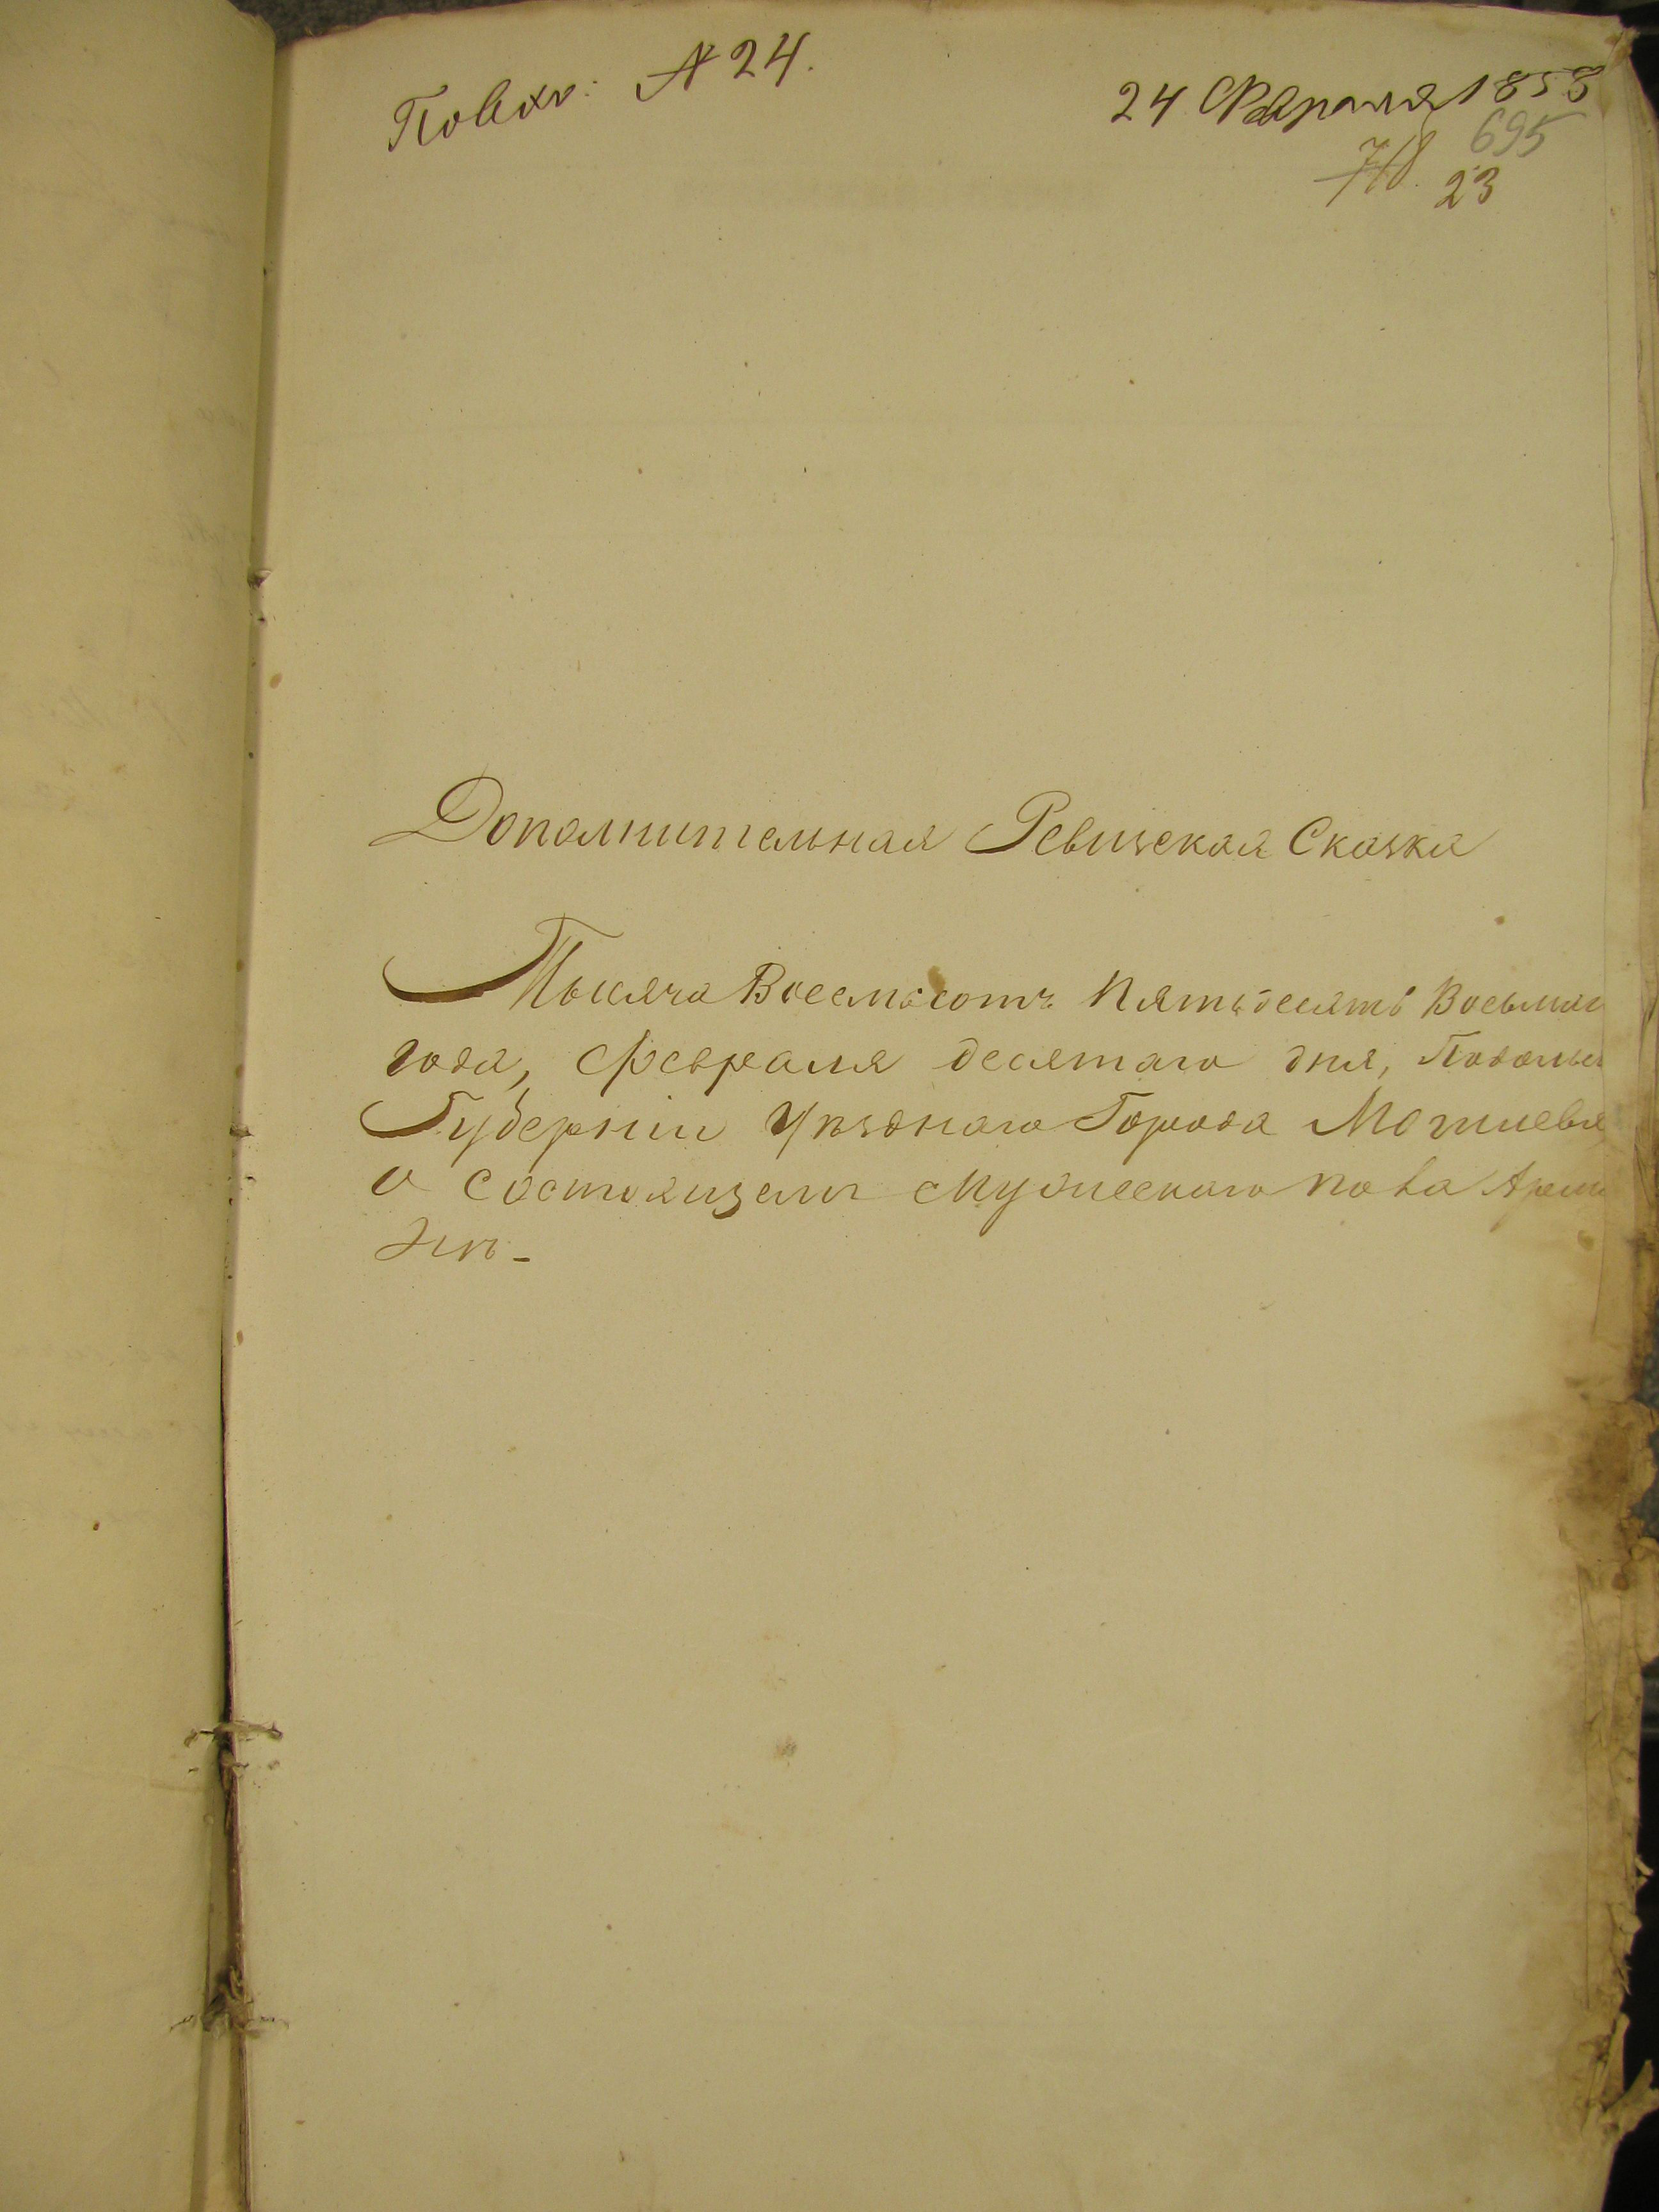 № 24.
24 Февраля 1858
695
718.
23
Дополнительная Ревизская Сказка
Тысяча Восемьсотъ Пятьдесятъ Восьмаг
года, Февраля десятаго дня, Подольс
Губерніи Уѣзднаго Города Могилева
О состоящемъ Мужескаго пола